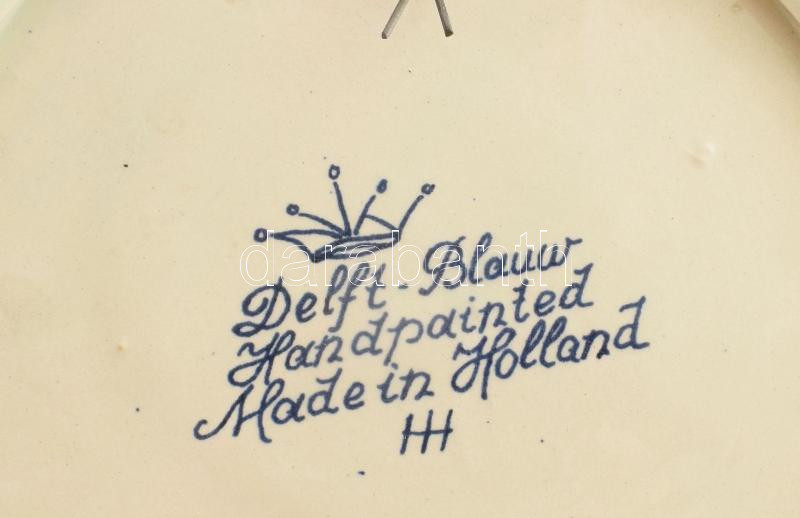 Delft-Blauw
Handpainted
Made in Holland
HH
darabanth